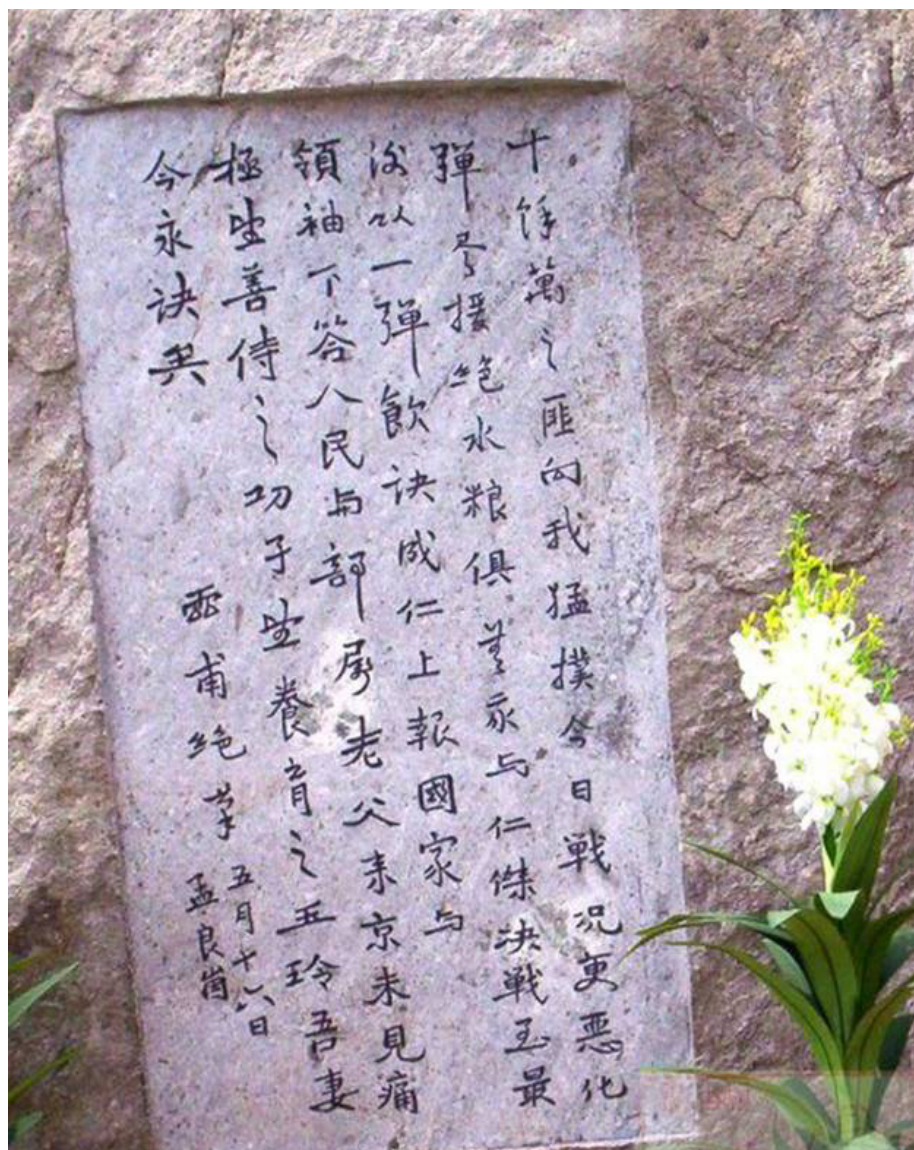 十餘萬之匪向我猛撲今日戦况更恶化
彈尽援绝水粮俱無我与仁傑决戦至最
後以一彈飲诀成仁上報國家与
領袖下答人民与部属老父来京未見痛
極望善待之幼子望養育之玉玲吾妻
今永诀矣
灵甫绝筆 五月十六日
孟良崮